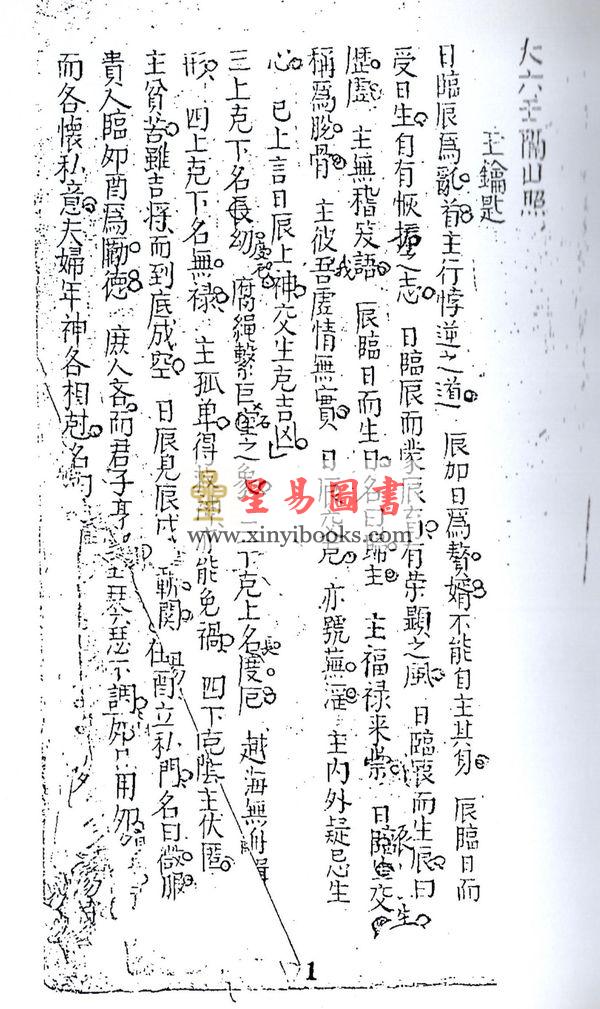 大六壬
壬鑰匙
日臨辰為亂首主行悖逆之道 辰加日為贅婿不能自主其身 辰臨日而
受日生自有恢振之志 日臨辰而蒙辰育有榮顯之風 日臨辰而生辰曰
歷虛 主無稽笑語 辰臨日而生日名曰歸主 主福祿來崇 日臨辰交生
稱為脫骨 主彼吾虛情無實 日辰交克 亦號蕪淫 主內外疑忌生
心 已上言日辰上神交生克吉凶
三上克下名長幼 腐繩繫巨 之象 三下克上名度厄 越海無舟楫
形 四上克下名無祿 主孤單得 能免禍 四下克 主伏匿
主貧苦雖吉將而到底成空 日辰見辰戌 斬關 在酉立私門名曰微服
貴人臨卯酉為勵德 庶人吝而君子亨 琴瑟不調 用
而各懷私意夫婦年神各相剋名
星易圖書
www.xinyibooks.com
1